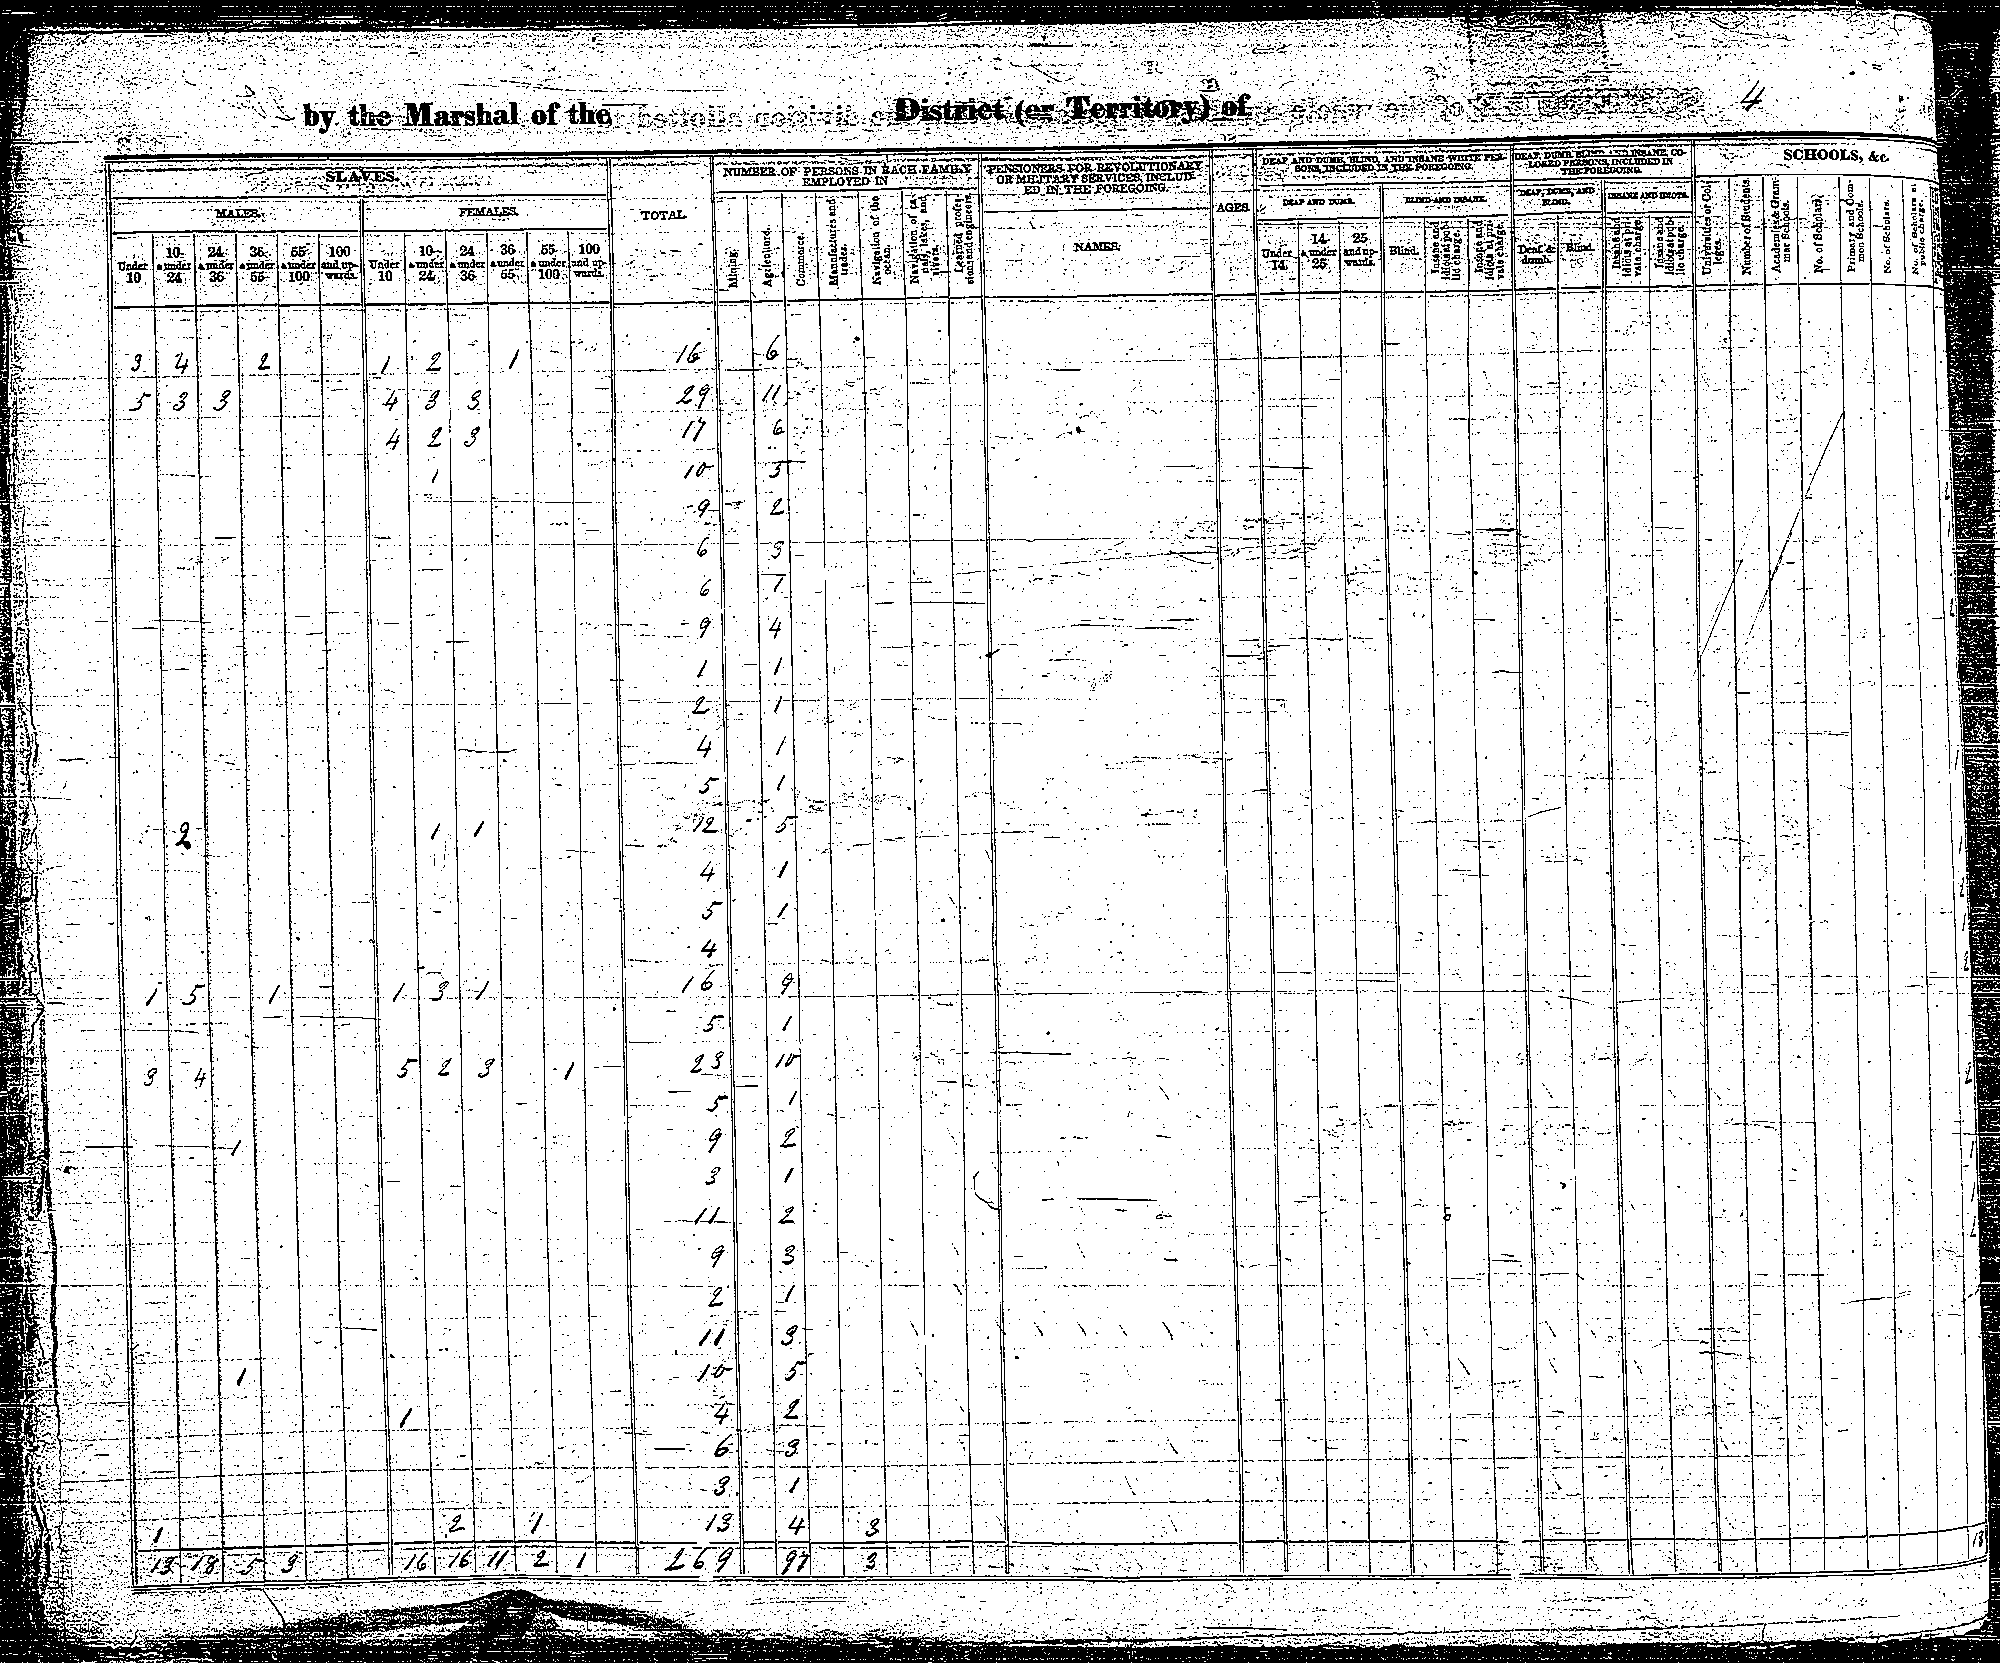 4
by the Marshal of the District (or Territory) of
SLAVES. TOTAL. NUMBER OF PERSONS IN EACH FAMILY EMPLOYED IN PENSIONERS FOR REVOLUTIONARY OR MILITARY SERVICES, INCLUDED IN THE FOREGOING. AGES. DEAF AND DUMB, BLIND, AND INSANE WHITE PERSONS, INCLUDED IN THE FOREGOING. DEAF, DUMB, BLIND, AND INSANE COLORED PERSONS, INCLUDED IN THE FOREGOING. SCHOOLS, &c.
MALES. FEMALES. NAMES. DEAF AND DUMB. BLIND AND INSANE. DEAF, DUMB, AND BLIND. INSANE AND IDIOTS.
Under 10 10 & under 24 24 & under 36 36 & under 55 55 & under 100 100 and upwards. Under 10 10 & under 24 24 & under 36 36 & under 55 55 & under 100 100 and upwards.
Mining. Agriculture. Commerce. Manufactures and trades. Navigation of the ocean. Navigation of canals, lakes, and rivers. Learned professions and engineers.
Under 14. 14 & under 25 25 and upwards. Blind. Insane and idiots at public charge. Insane and idiots at private charge. Deaf & dumb. Blind. Insane and idiots at private charge. Insane and idiots at public charge.
Universities or Colleges. Number of Students. Academies & Grammar Schools. No. of Scholars. Primary and Common Schools. No. of Scholars. No. of Scholars at public charge.
3 4 2 1 2 1 16 6
5 3 3 4 3 3 29 11
4 2 3 17 6
1 10 3
9 2
6 3
6 1
9 4
1 1
2 1
4 1
5 1
2 1 1 12 5
4 1
5 1
4
1 5 1 1 3 1 16 9
5 1
3 4 5 2 3 1 23 10
5 1
1 9 2
3 1
11 2
9 3
2 1
11 3
1 10 5
1 4 2
6 3
3 1
1 2 1 13 4 3
13 18 5 3 16 16 11 2 1 269 97 3 18